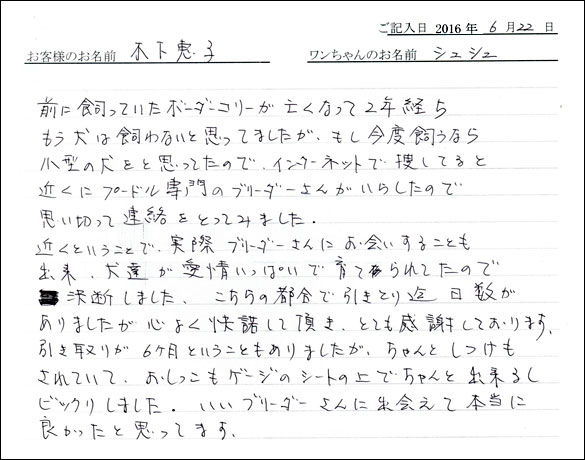 ご記入日 2016年 6月22日
お客様のお名前 木下恵子 ワンちゃんのお名前 シュシュ
前に飼っていたボーダーコリーが亡くなって2年経ち
もう犬は飼わないと思ってましたが、もし今度飼うなら
小型の犬をと思ってたので、インターネットで捜してると
近くにプードル専門のブリーダーさんがいらしたので
思い切って連絡をとってみました.
近くということで、実際ブリーダーさんにお会いすることも
出来、犬達が愛情いっぱいで育てられてたので
決断しました、こちらの都合で引きとり迄日数が
ありましたが心よく快諾して頂き、とても感謝しております、
引き取りが6ヶ月ということもありましたが、ちゃんとしつけも
されていて、おしっこもゲージのシートの上でちゃんと出来るし
ビックリしました. いいブリーダーさんに出会えて本当に
良かったと思ってます、